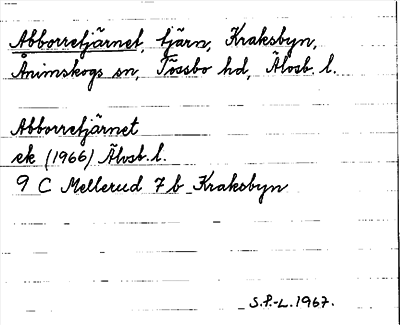 Abborretjärnet, tjärn, Kraksbyn,
Ånimskogs sn, Tössbo hd, Älvsb. l.
Abborretjärnet
ek (1966) Älvsb. l.
9 C Mellerud 7 b Kraksbyn
S.F.-L. 1967.